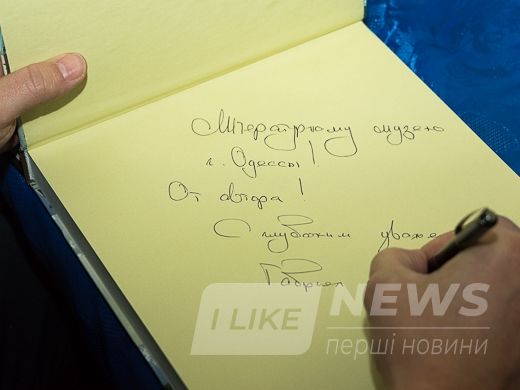 Литературному музею
г. Одессы!
От автора!
С глубоким уваже
Габриел
I LIKE NEWS
перші новини